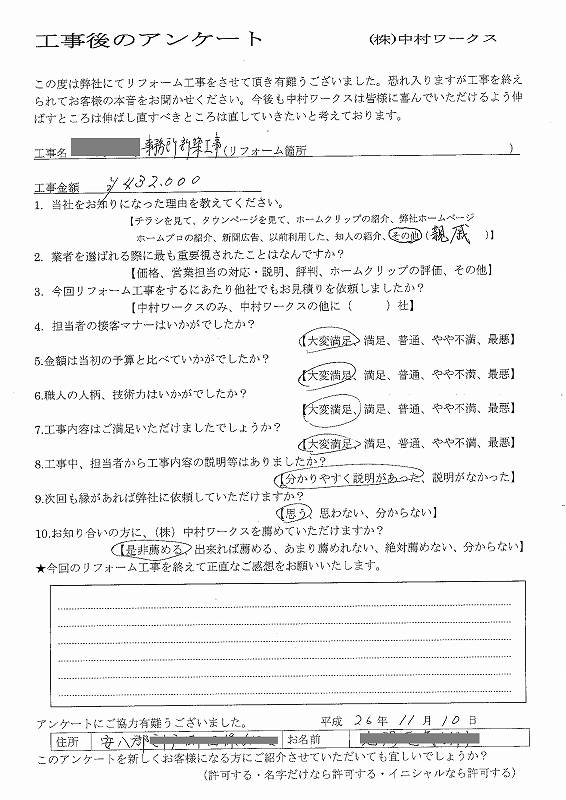 工事後のアンケート
(株)中村ワークス
この度は弊社にてリフォーム工事をさせて頂き有難うございました。恐れ入りますが工事を終え
られてお客様の本音をお聞かせください。今後も中村ワークスは皆様に喜んでいただけるよう伸
ばすところは伸ばし直すべきところは直していきたいと考えております。
工事名 事務所新築工事(リフォーム箇所 )
工事金額 ¥432.000
1. 当社をお知りになった理由を教えてください。
【チラシを見て、タウンページを見て、ホームクリップの紹介、弊社ホームページ
ホームプロの紹介、新聞広告、以前利用した、知人の紹介、その他(親戚 )】
2. 業者を選ばれる際に最も重要視されたことはなんですか?
【価格、営業担当の対応・説明、評判、ホームクリップの評価、その他】
3. 今回リフォーム工事をするにあたり他社でもお見積りを依頼しましたか?
【中村ワークスのみ、中村ワークスの他に( )社】
4. 担当者の接客マナーはいかがでしたか?
【大変満足、満足、普通、やや不満、最悪】
5.金額は当初の予算と比べていかがでしたか?
【大変満足、満足、普通、やや不満、最悪】
6.職人の人柄、技術力はいかがでしたか?
【大変満足、満足、普通、やや不満、最悪】
7.工事内容はご満足いただけましたでしょうか?
【大変満足、満足、普通、やや不満、最悪】
8.工事中、担当者から工事内容の説明等はありましたか?
【分かりやすく説明があった、説明がなかった】
9.次回も縁があれば弊社に依頼していただけますか?
【思う、思わない、分からない】
10.お知り合いの方に、(株)中村ワークスを薦めていただけますか?
【是非薦める、出来れば薦める、あまり薦めれない、絶対薦めない、分からない】
★今回のリフォーム工事を終えて正直なご感想をお願いいたします。
アンケートにご協力有難うございました。 平成 26年 11月 10日
住所 安八郡 お名前
このアンケートを新しくお客様になる方にご紹介させていただいても宜しいでしょうか?
(許可する・名字だけなら許可する・イニシャルなら許可する)